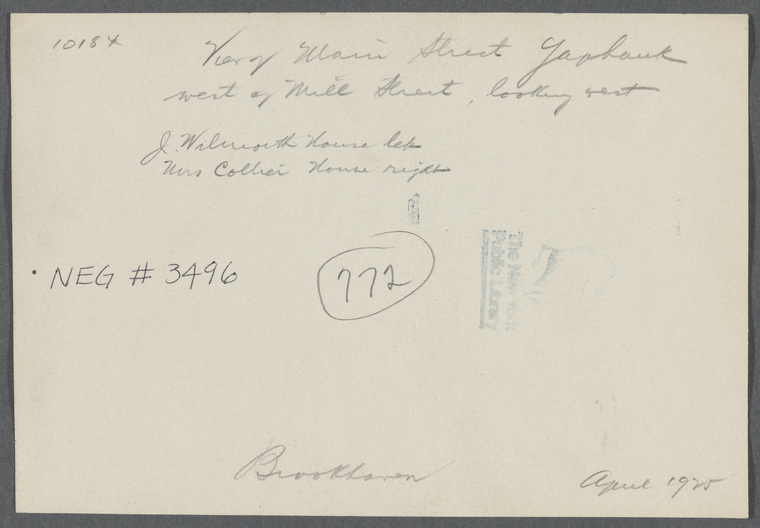 10184
View of Main Street Yaphank
west of Mill Street, looking west
J. Wilmorth House left
Mrs Collier House right
NEG # 3496
772
The New York
Public Library
Brookhaven
April 1925